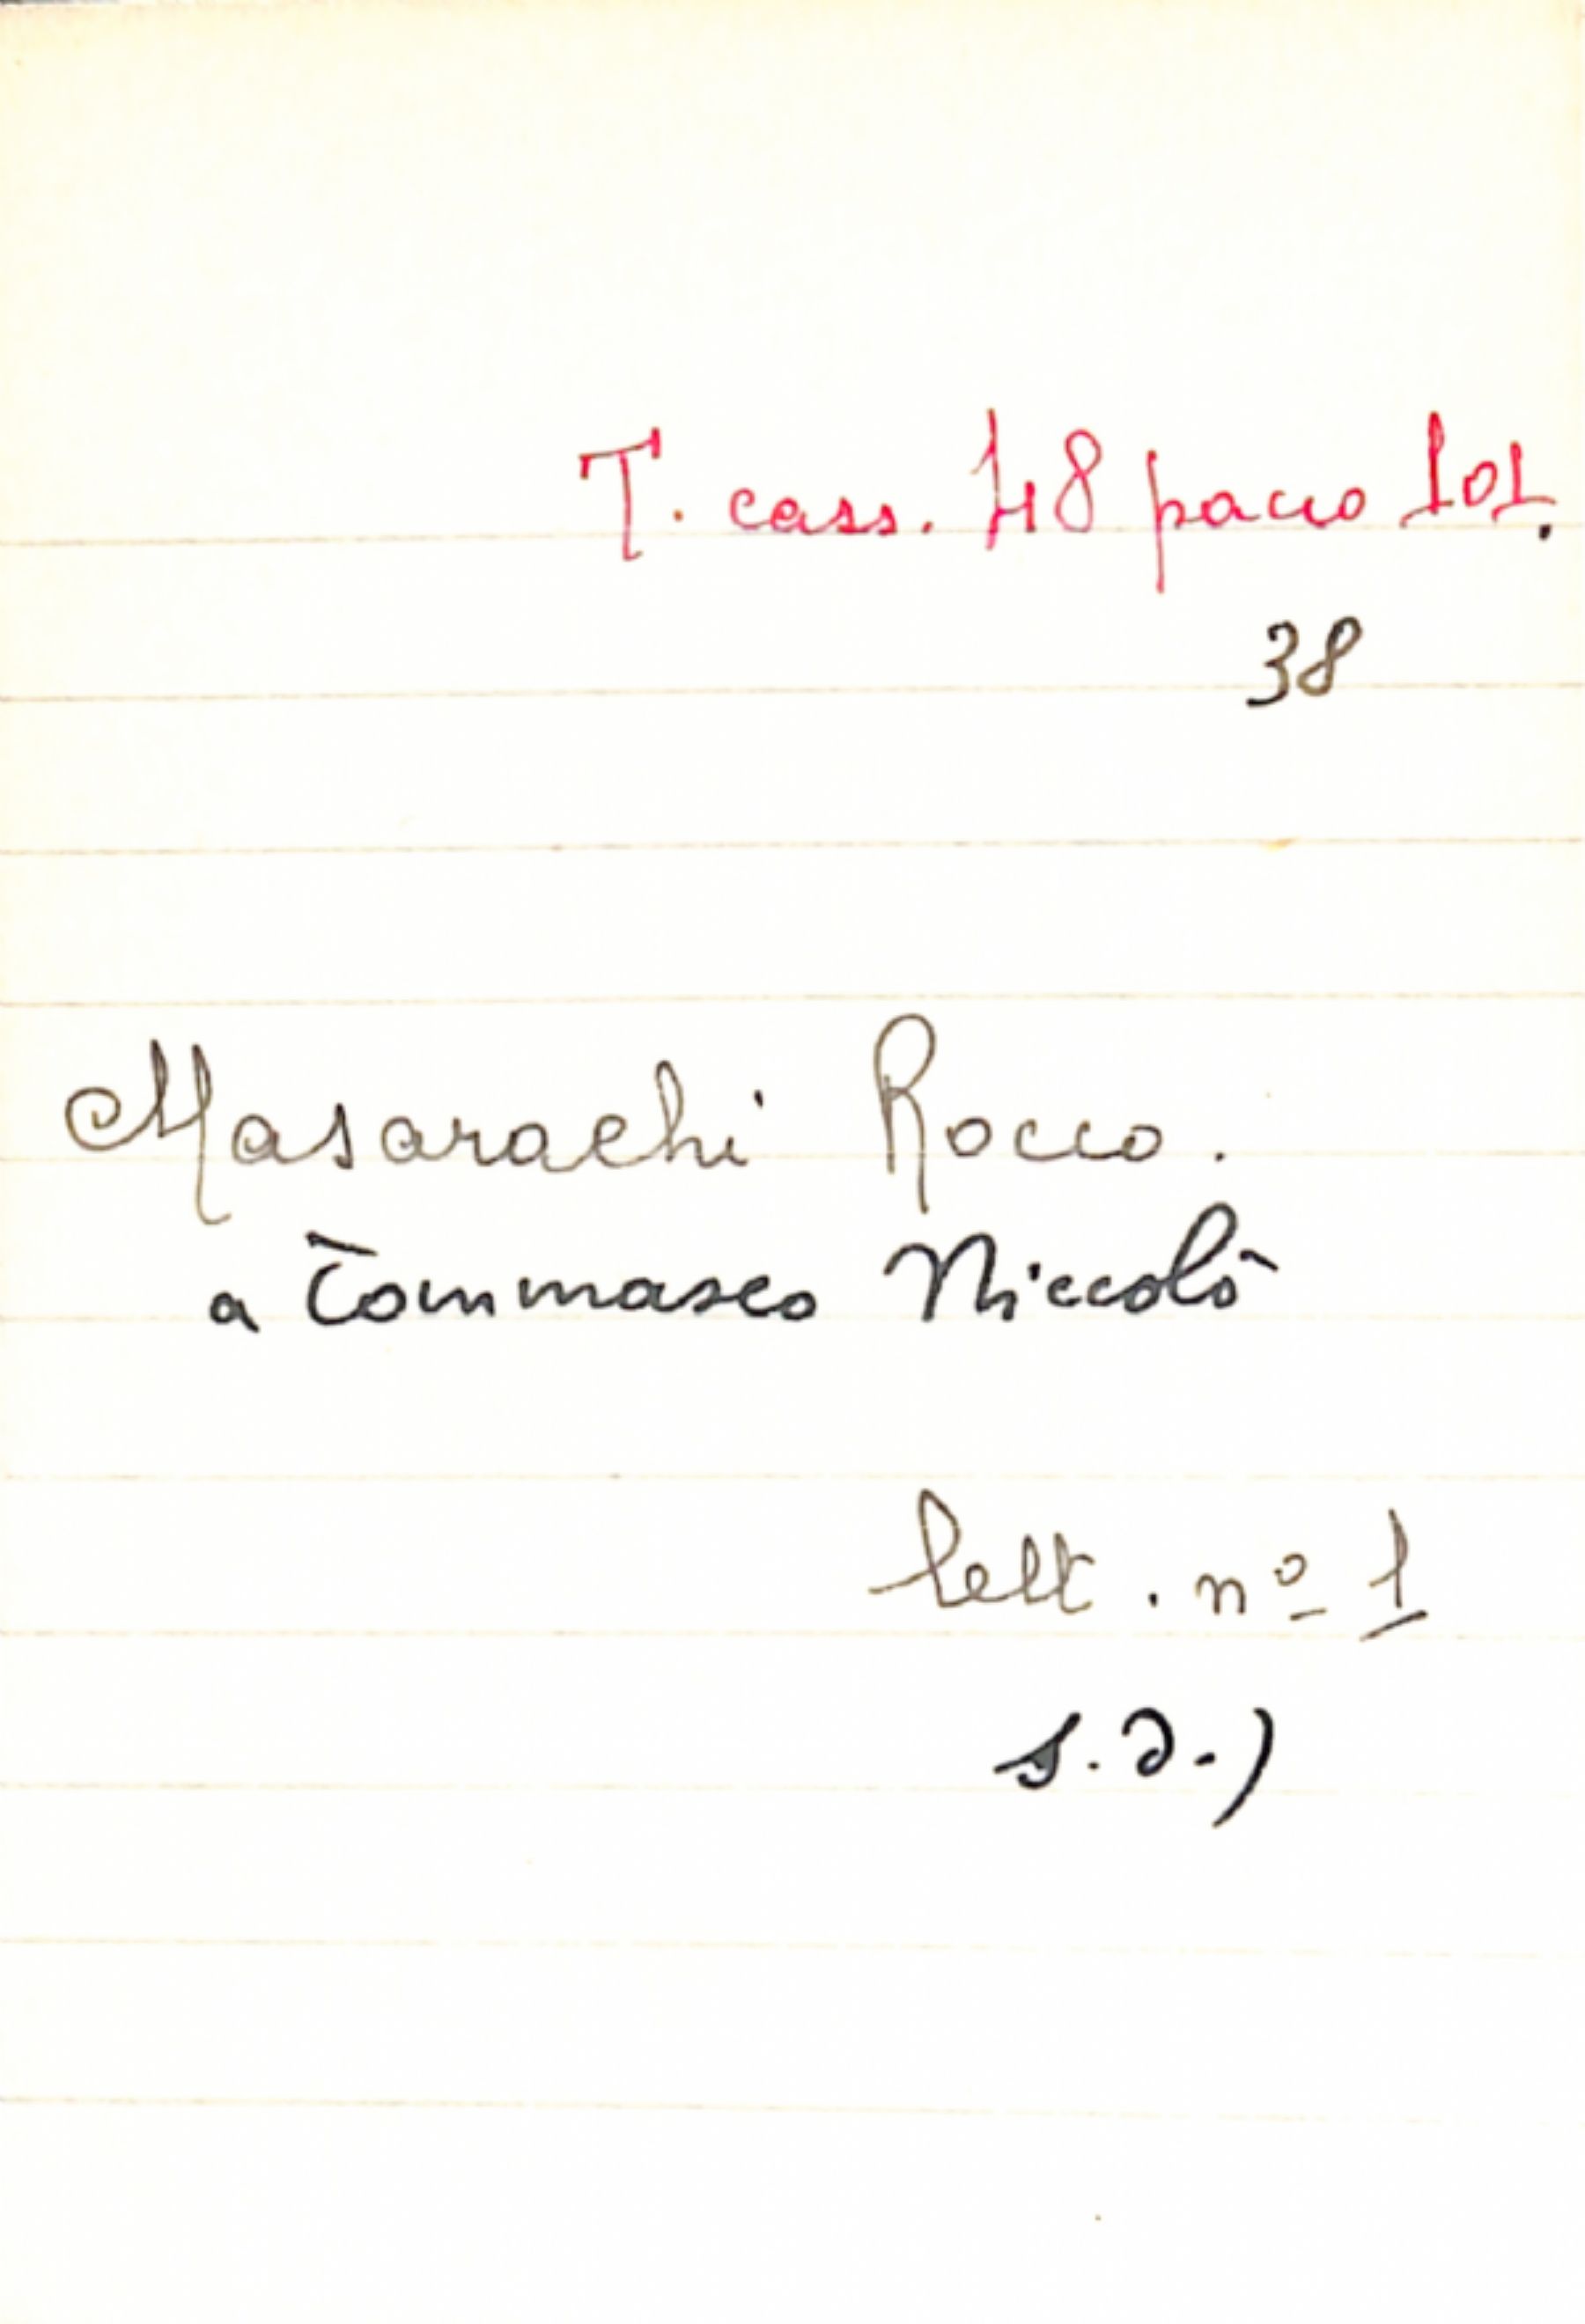 T. cass. 48 pacco 101.
38
Masarachi Rocco.
a Tommaseo Niccolò
lett. nº 1
s.d.)